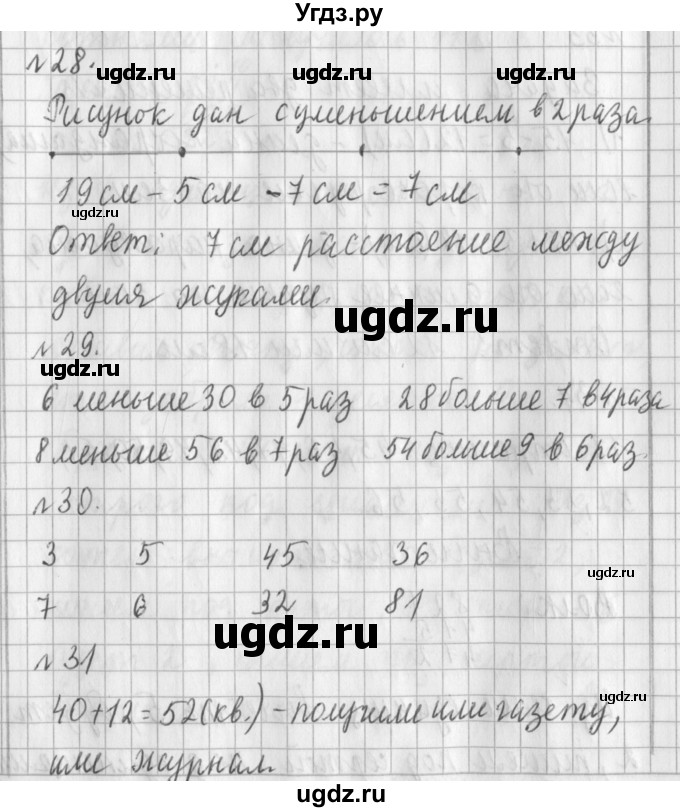 Угдз.ру
№28.
Рисунок дан с уменьшением в 2 раза.
19см – 5см – 7см = 7см
Ответ: 7см расстояние между
двумя жуками.
№29.
6 меньше 30 в 5 раз 28 больше 7 в 4 раза
8 меньше 56 в 7 раз 54 больше 9 в 6 раз.
№30.
3 5 45 36
7 6 32 81
№31
40+12=52(кв.) – получили или газету,
или журнал.
ugdz.ru
ugdz.ru
ugdz.ru
ugdz.ru
ugdz.ru
ugdz.ru
ugdz.ru
ugdz.ru
ugdz.ru
ugdz.ru